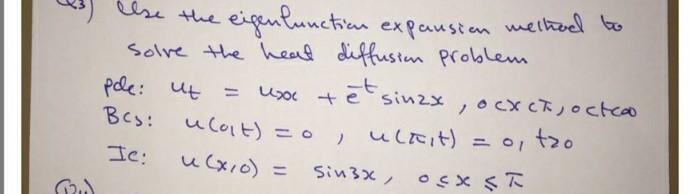 Q3) Use the eigenfunction expansion method to
solve the heat diffusion problem
pde: ut = uxx + e^-t sin2x, 0<x<π, 0<t<∞
BCs: u(0,t) = 0, u(π,t) = 0, t≥0
Ic: u(x,0) = sin3x, 0≤x≤π